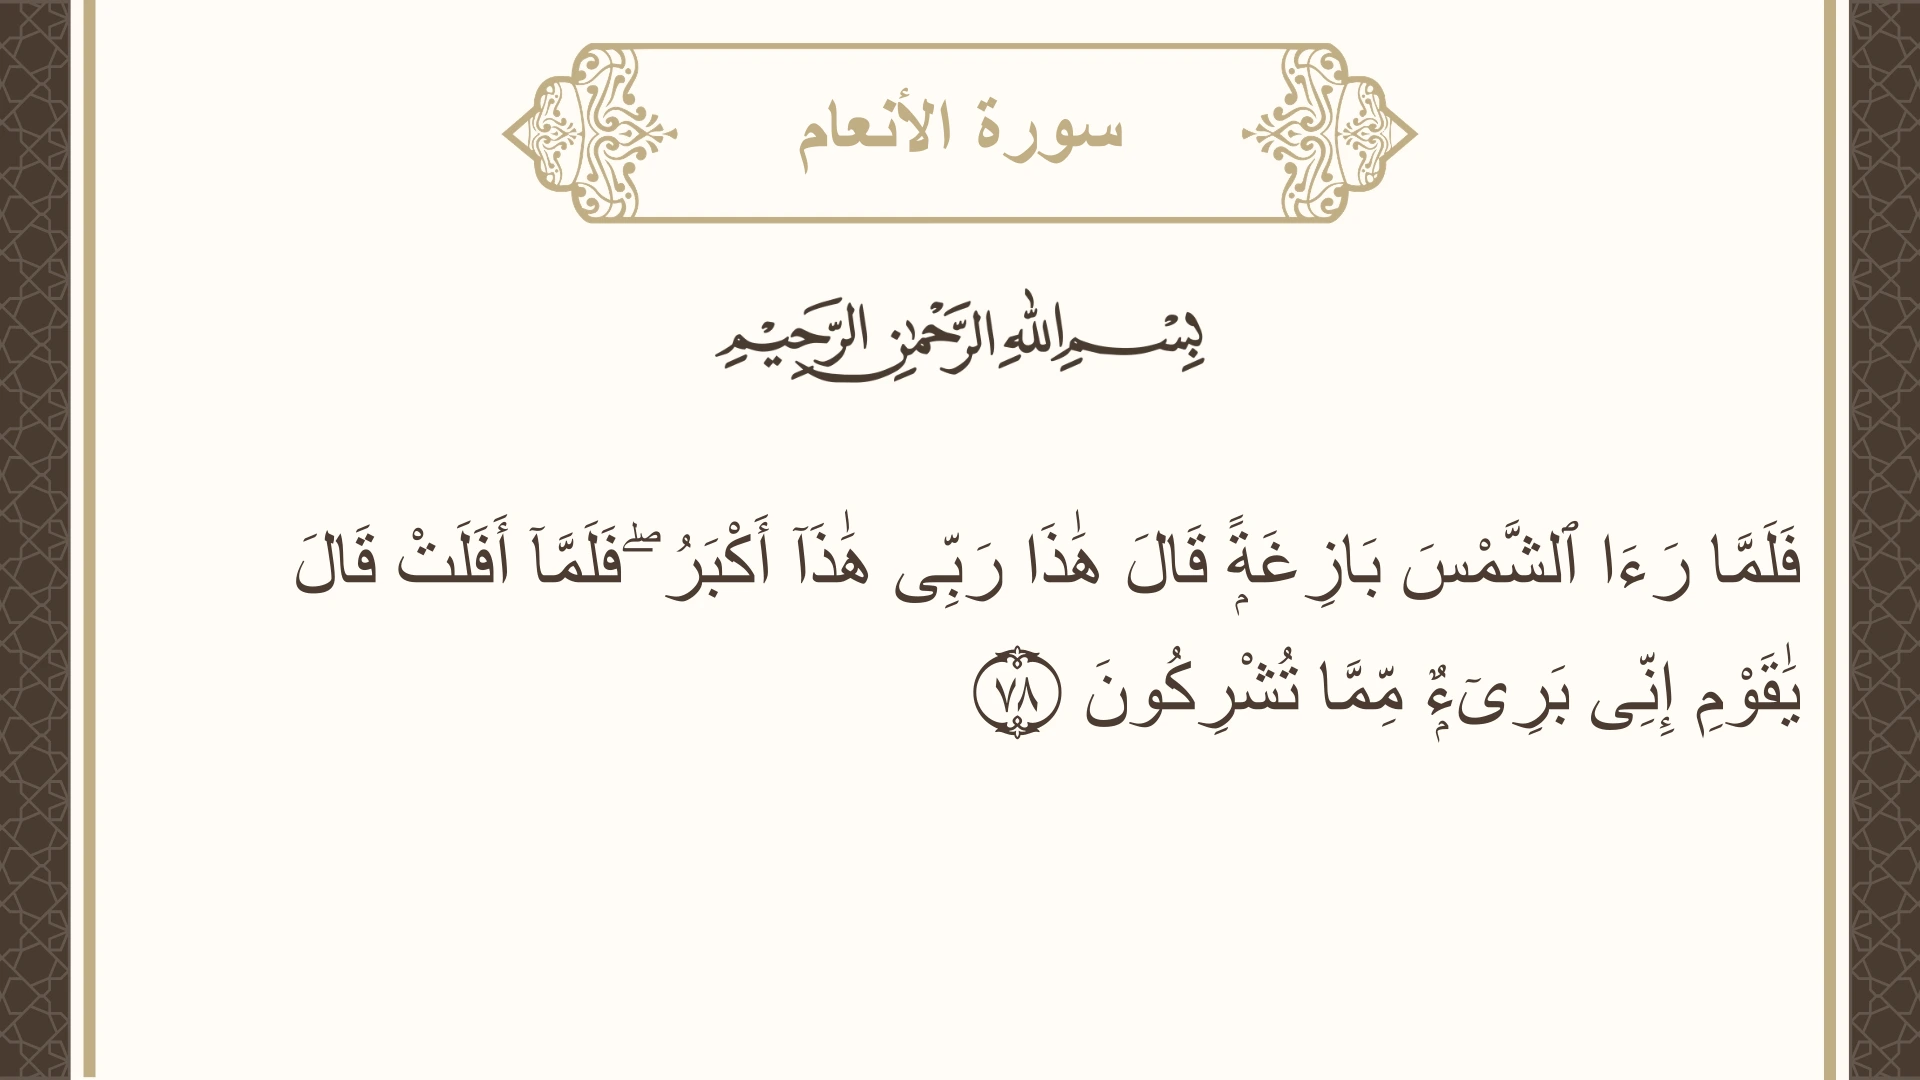 سورة الأنعام
بِسْمِ اللهِ الرَّحْمٰنِ الرَّحِيْمِ
فَلَمَّا رَءَا ٱلشَّمْسَ بَازِغَةًۭ قَالَ هَٰذَا رَبِّى هَٰذَآ أَكْبَرُ ۖ فَلَمَّآ أَفَلَتْ قَالَ
يَٰقَوْمِ إِنِّى بَرِىٓءٌۭ مِّمَّا تُشْرِكُونَ ٧٨